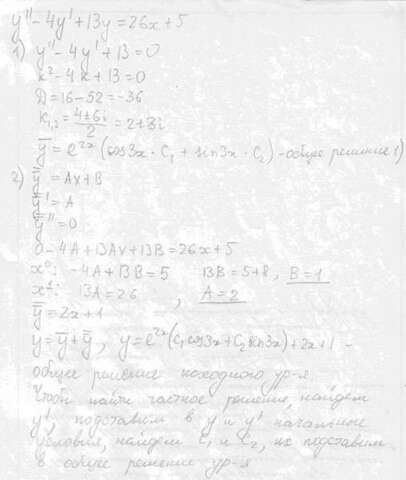 y'' - 4y' + 13y = 26x + 5
1) y'' - 4y' + 13 = 0
k² - 4k + 13 = 0
D = 16 - 52 = -36
K₁,₂ = (4 ± 6i)/2 = 2 ± 3i
ȳ = e²ˣ (cos3x · C₁ + sin3x · C₂) - общее решение 1)
2) y̿ = Ax + B
y̿' = A
y̿'' = 0
0 - 4A + 13Ax + 13B = 26x + 5
x⁰: -4A + 13B = 5 13B = 5 + 8, B = 1
x¹: 13A = 26, A = 2
y̿ = 2x + 1
y = ȳ + y̿, y = e²ˣ (C₁cos3x + C₂sin3x) + 2x + 1 -
общее решение исходного ур-я
Чтобы найти частное решение, найдем
y', подставим в y и y' начальные
условия, найдем C₁ и C₂, их подставим
в общее решение ур-я